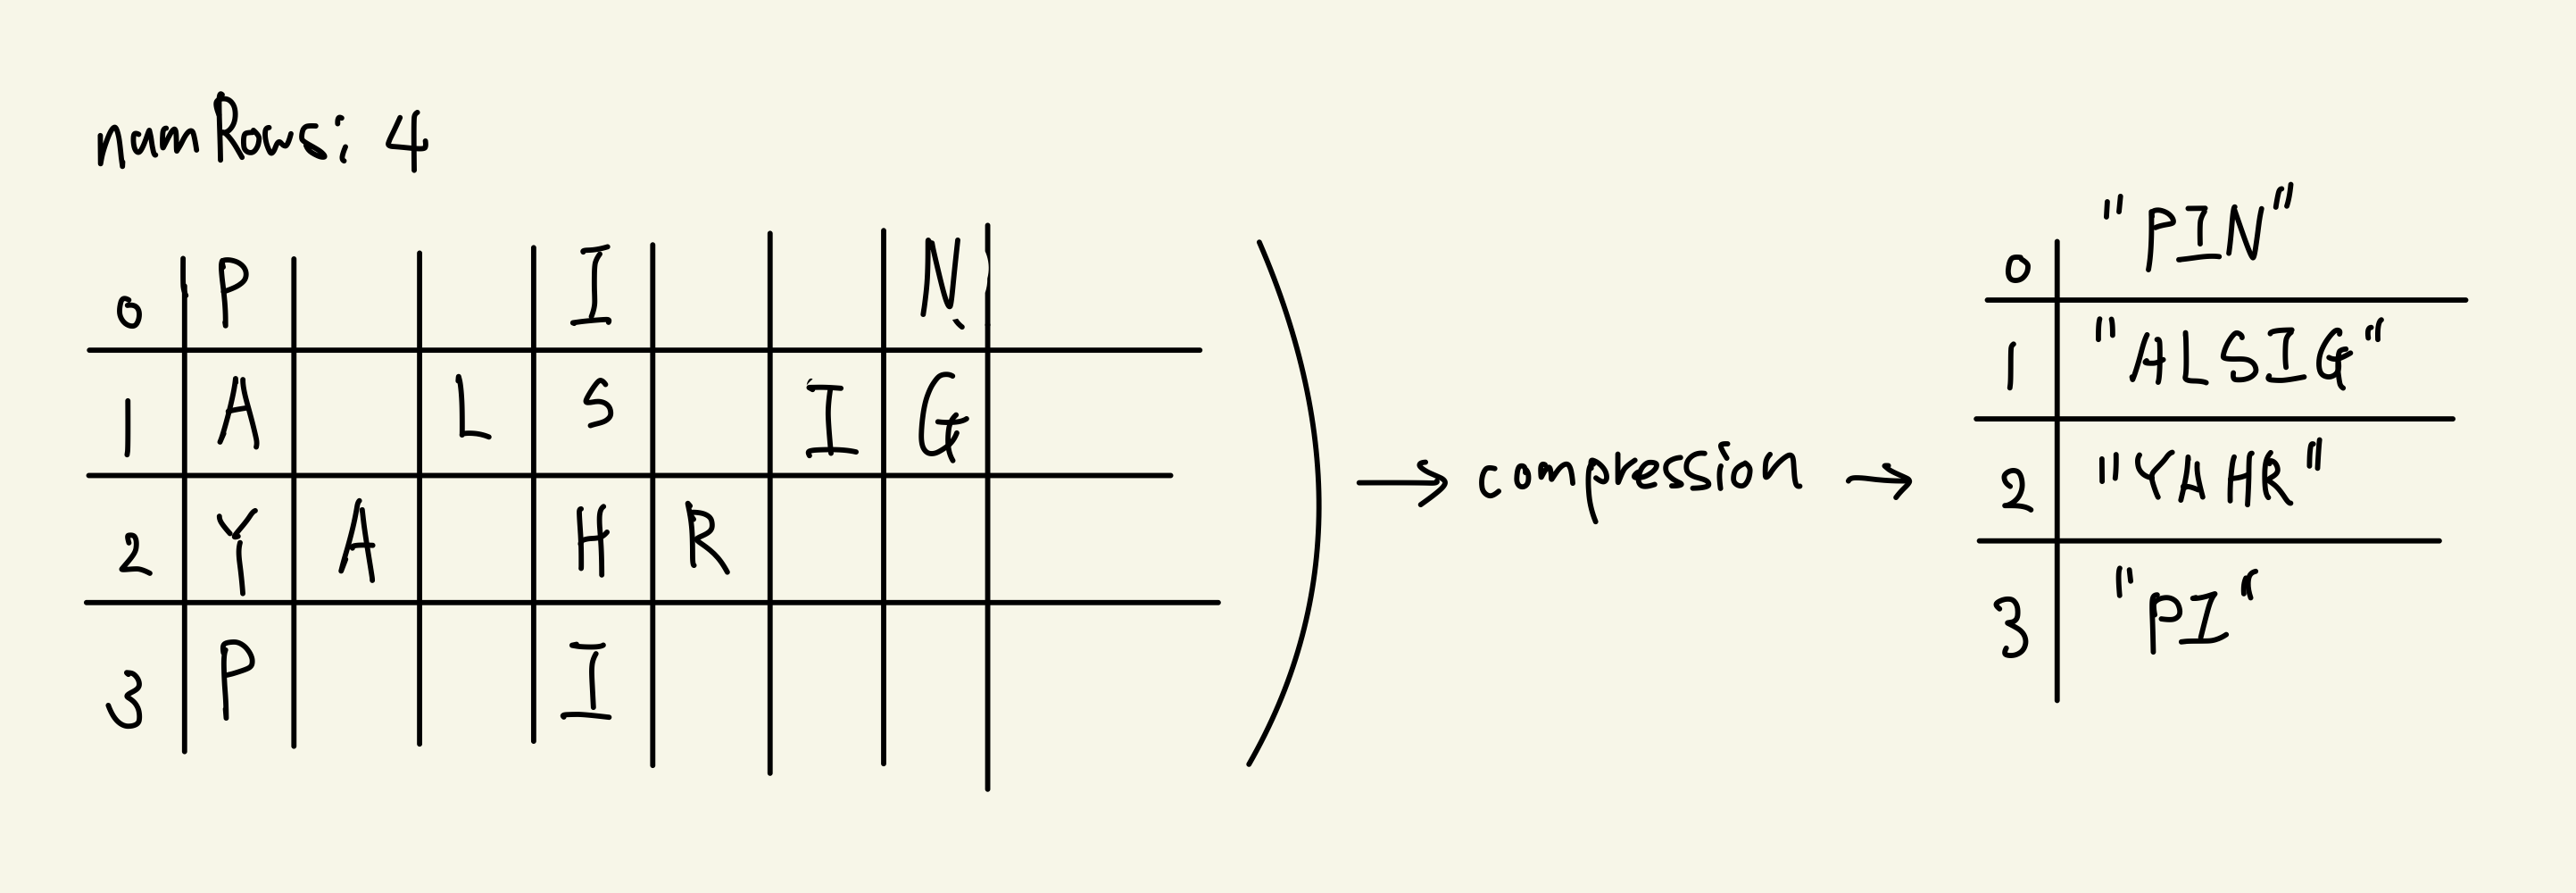 numRows: 4
0 P I N
1 A L S I G
2 Y A H R
3 P I
→ compression →
0 "PIN"
1 "ALSIG"
2 "YAHR"
3 "PI"